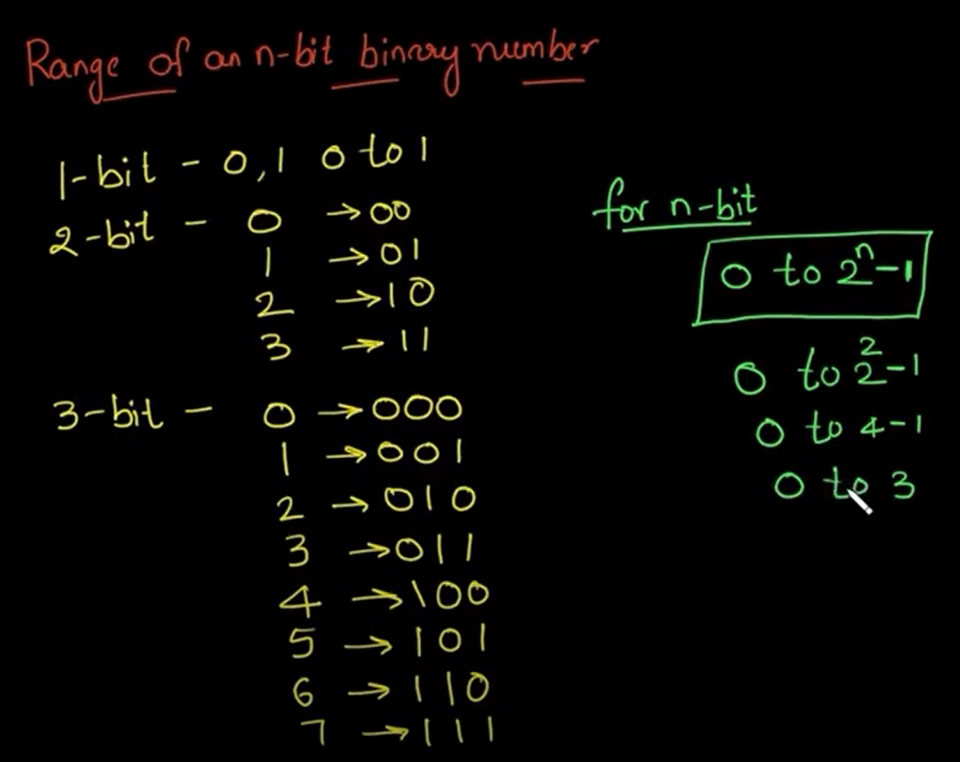 Range of an n-bit binary number
1-bit - 0,1 0 to 1
2-bit - 0 → 00
1 → 01
2 → 10
3 → 11
3-bit - 0 → 000
1 → 001
2 → 010
3 → 011
4 → 100
5 → 101
6 → 110
7 → 111
for n-bit
0 to 2ⁿ-1
0 to 2²-1
0 to 4-1
0 to 3